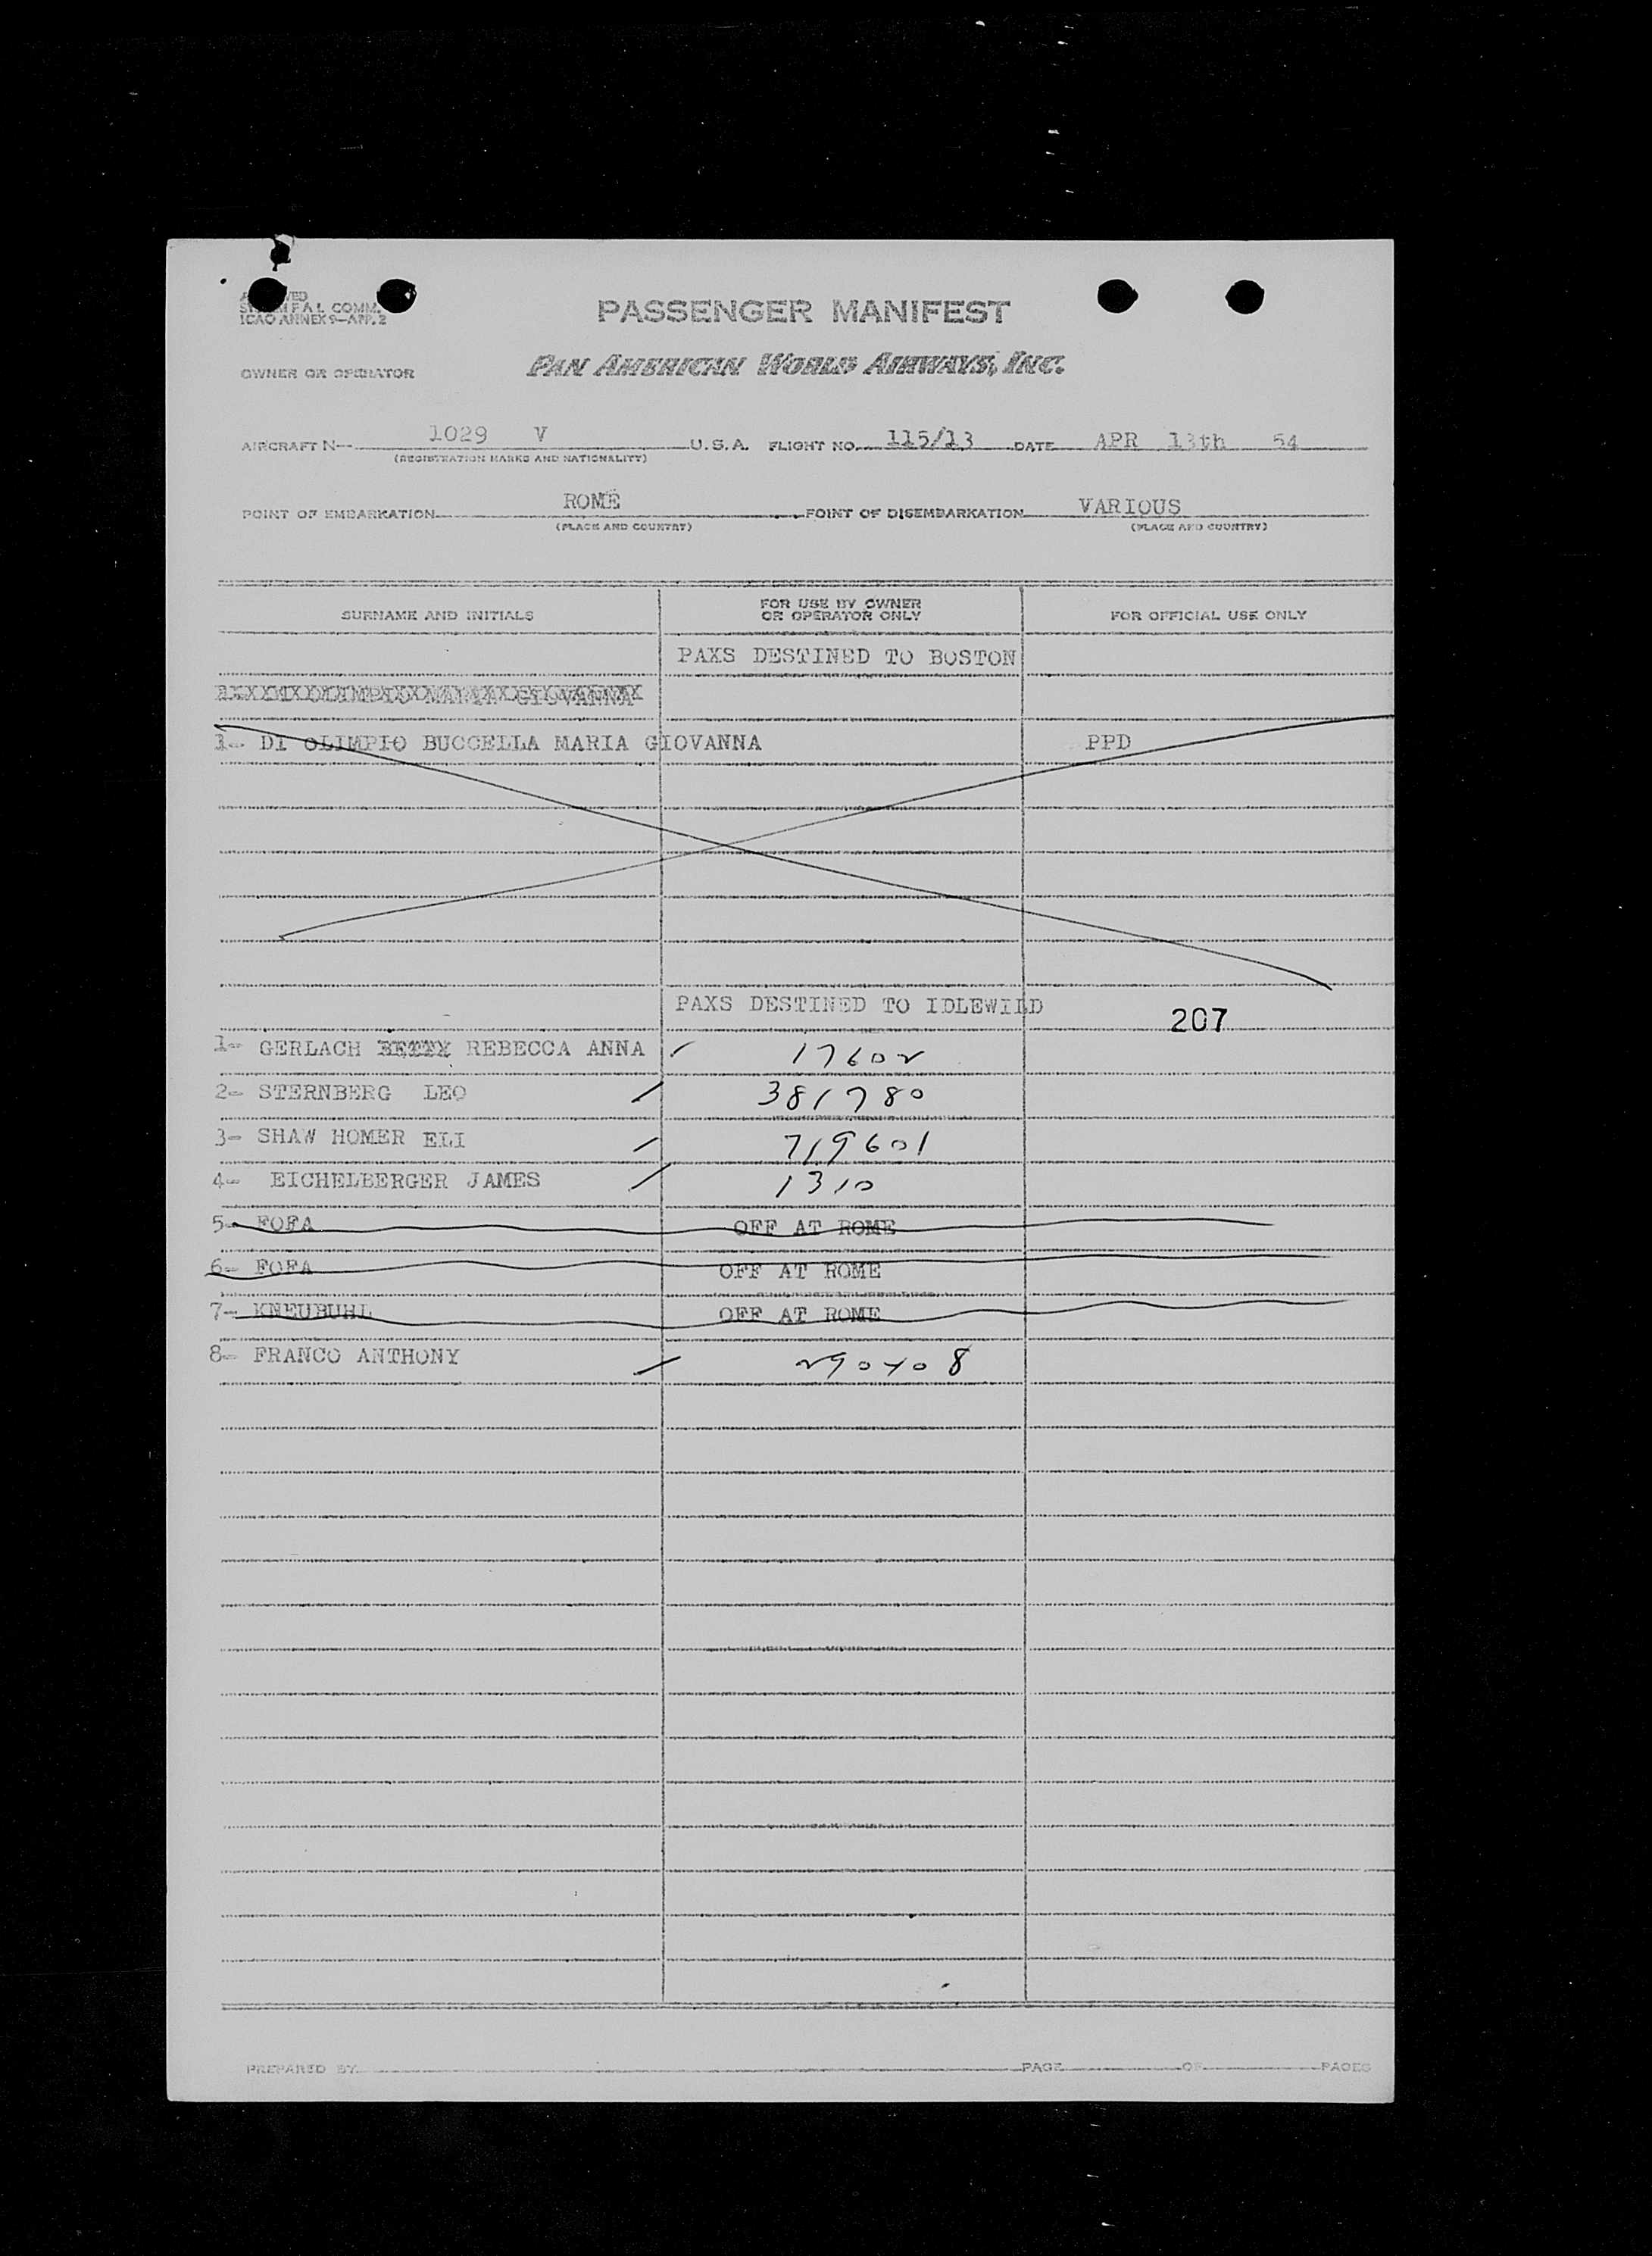 PASSENGER MANIFEST
S F A L COMM.
ICAO ANNEX 9—APP. 2
OWNER OR OPERATOR PAN AMERICAN WORLD AIRWAYS, INC.
AIRCRAFT N— 1029 V U.S.A. FLIGHT NO. 115/13 DATE APR 13th 54
(REGISTRATION MARKS AND NATIONALITY)
POINT OF EMBARKATION ROME POINT OF DISEMBARKATION VARIOUS
(PLACE AND COUNTRY) (PLACE AND COUNTRY)
SURNAME AND INITIALS FOR USE BY OWNER OR OPERATOR ONLY FOR OFFICIAL USE ONLY
PAXS DESTINED TO BOSTON
GIOVANNA
1- DI OLIMPIO BUCCELLA MARIA GIOVANNA PPD
PAXS DESTINED TO IDLEWILD
207
1- GERLACH BETTY REBECCA ANNA 17602
2- STERNBERG LEO 381780
3- SHAW HOMER ELI 719601
4- EICHELBERGER JAMES 1310
5- FOFA OFF AT ROME
6- FOFA OFF AT ROME
7- KNEUBUHL OFF AT ROME
8- FRANCO ANTHONY
PREPARED BY PAGE OF PAGES